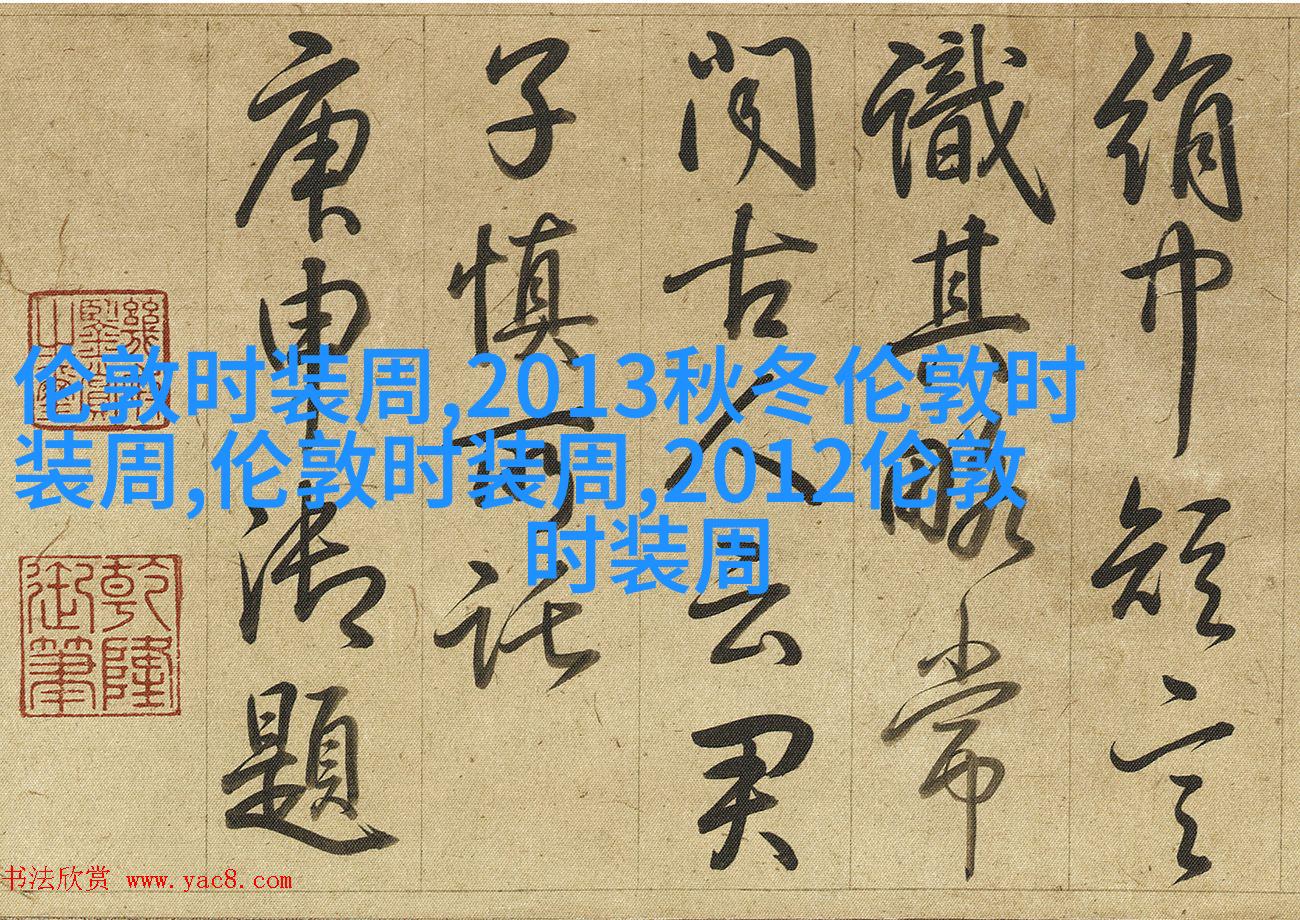 伦敦时装周,2013秋冬伦敦时
装周,伦敦时装周,2012伦敦
时装周
絹中短言
識其略常
聞古人云君
子慎所託
庚申御題
乾隆御筆
书法欣赏 www.yac8.com